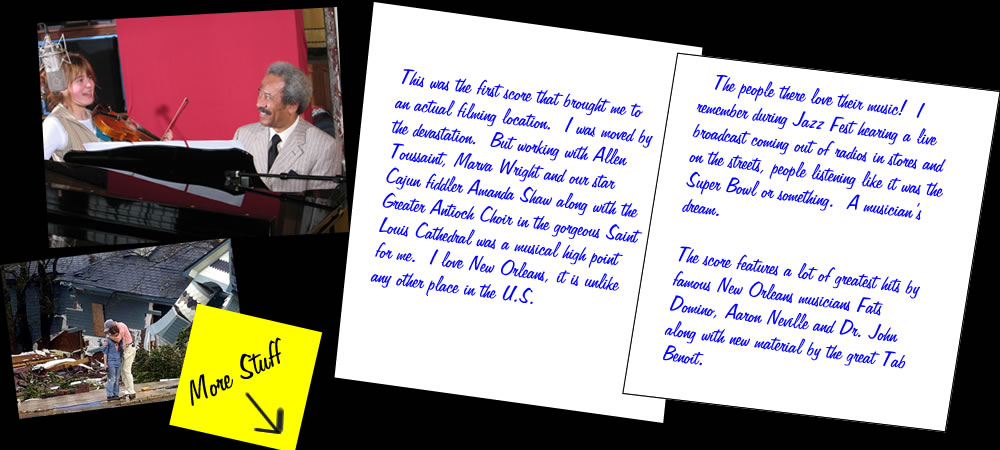 This was the first score that brought me to
an actual filming location. I was moved by
the devastation. But working with Allen
Toussaint, Marva Wright and our star
Cajun fiddler Amanda Shaw along with the
Greater Antioch Choir in the gorgeous Saint
Louis Cathedral was a musical high point
for me. I love New Orleans, it is unlike
any other place in the U.S.
The people there love their music! I
remember during Jazz Fest hearing a live
broadcast coming out of radios in stores and
on the streets, people listening like it was the
Super Bowl or something. A musician's
dream.
The score features a lot of greatest hits by
famous New Orleans musicians Fats
Domino, Aaron Neville and Dr. John
along with new material by the great Tab
Benoit.
More Stuff